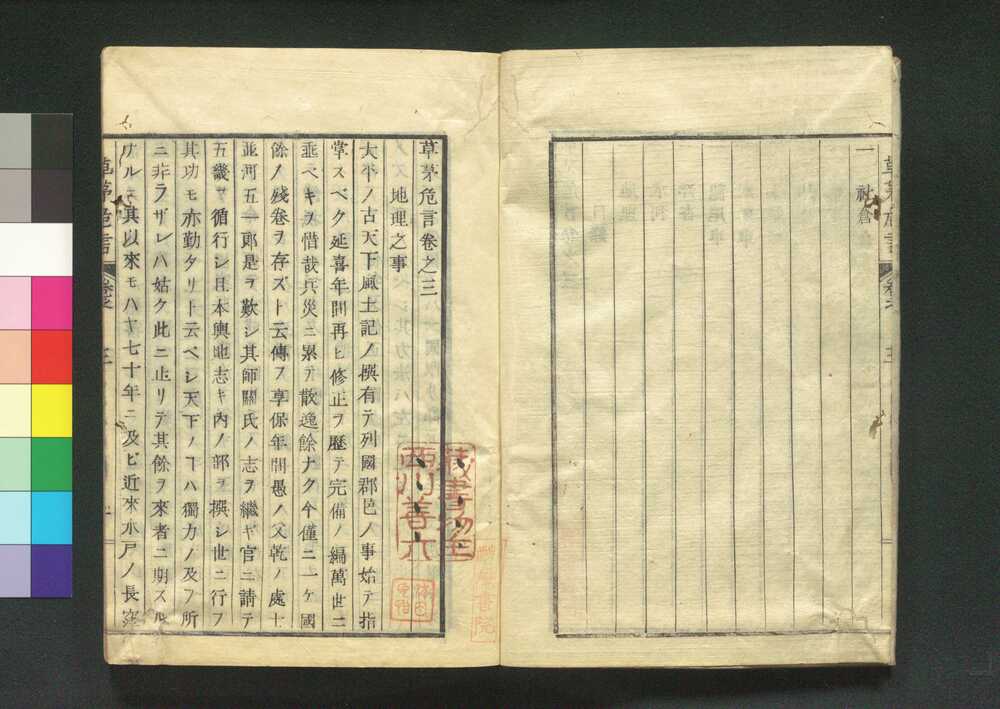 一 社倉
草茅危言 卷之 三
草茅危言卷之三
地理之事
大古ノ古天下風土記ノ撰有テ列國郡邑ノ事始テ指
掌スベク延喜年間再ヒ修正ヲ歷テ完備ノ編萬世ニ
垂ベキヲ惜哉兵災ニ累テ散逸餘ナク今僅ニ一ケ國
餘ノ殘卷ヲ存ズト云傳フ享保年間愚ノ父執ノ處士
並河五一郎是ヲ歎シ其師關氏ノ志ヲ繼ギ官ニ請テ
五畿ヲ循行シ日本輿地志キ内ノ部ヲ撰シ世ニ行フ
其功モ亦勤タリト云ベシ天下ノヿハ獨力ノ及フ所
ニ非ラザレハ姑ク此ニ止リテ其餘ヲ來者ニ期スル
ナルベ其以來モハヤ七十年ニ及ビ近來水戸ノ長窪
藏書
西川善六